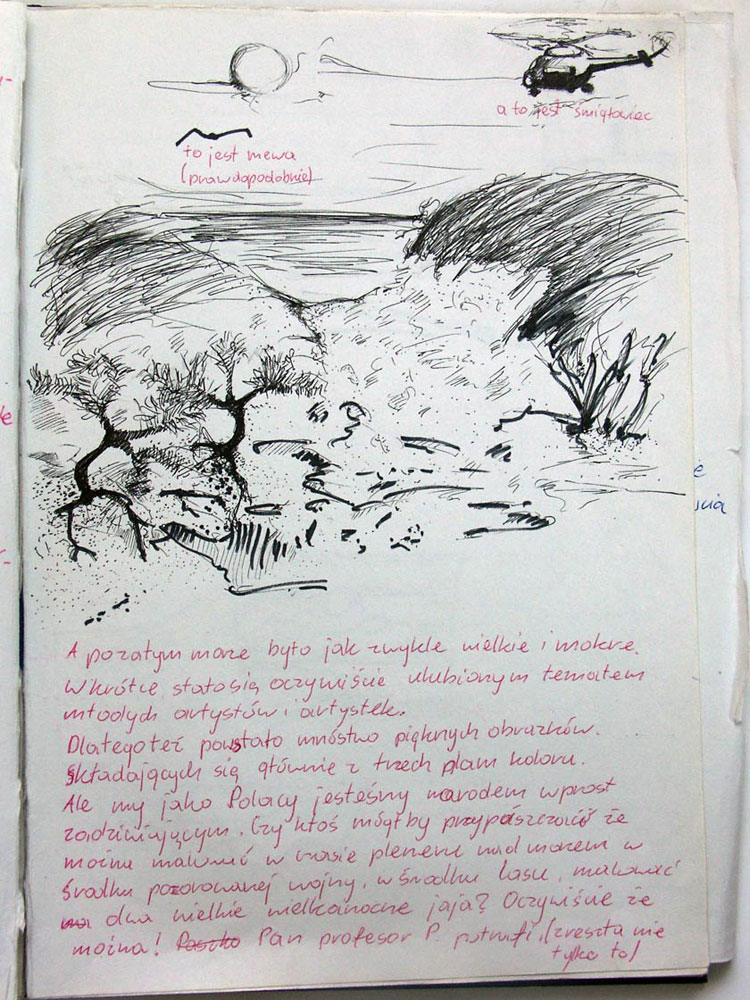 a to jest śmigłowiec
to jest mewa
(prawdopodobnie)
A pozatym morze było jak zwykle wielkie i mokre.
Wkrótce stało się oczywiście ulubionym tematem
młodych artystów i artystek.
Dlatego też powstało mnóstwo pięknych obrazków.
składających się głównie z trzech plam koloru.
Ale my jako Polacy jesteśmy narodem wprost
zadziwiającym. Czy ktoś mógłby przypuszczać że
można malować w czasie pleneru nad morzem w
środku pozorowanej wojny, w środku lasu, malować
dwa wielkie wielkanocne jaja? Oczywiście że
można! Paszko Pan profesor P. potrafi, (zresztą nie
tylko to)
e